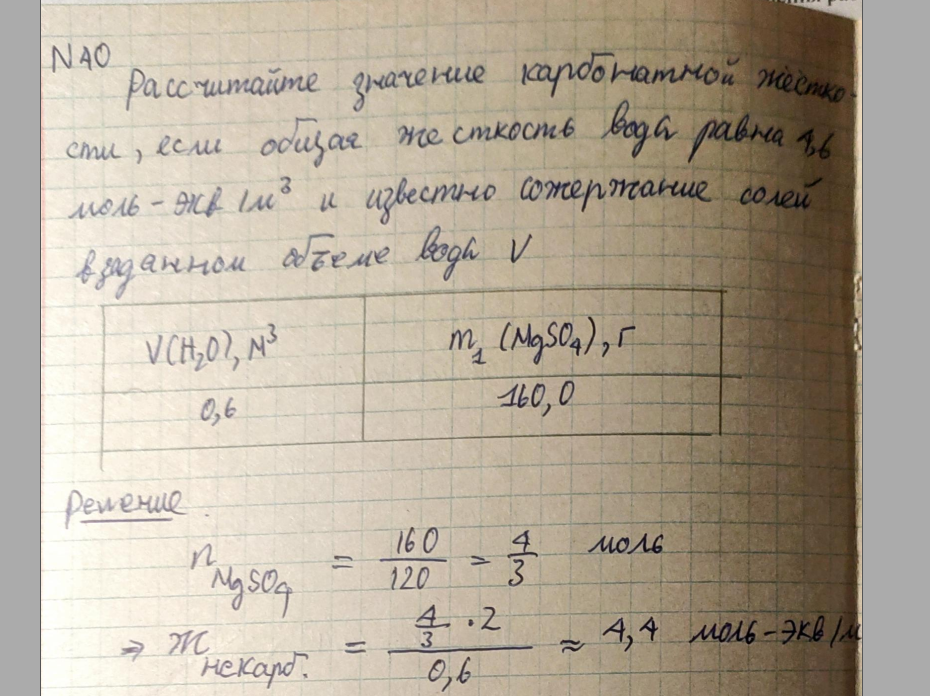 NAO
Рассчитайте значение карбонатной жестко-
сти, если общая жесткость воды равна 4,6
моль-экв/м³ и известно сожержание солей
в заданном объеме воды V
V(H₂O), м³ m₁ (MgSO₄), г
0,6 160,0
Решение
n MgSO₄ = 160/120 = 4/3 моль
⇒ Ж некарб. = (4/3 · 2)/0,6 ≈ 4,4 моль-экв/м